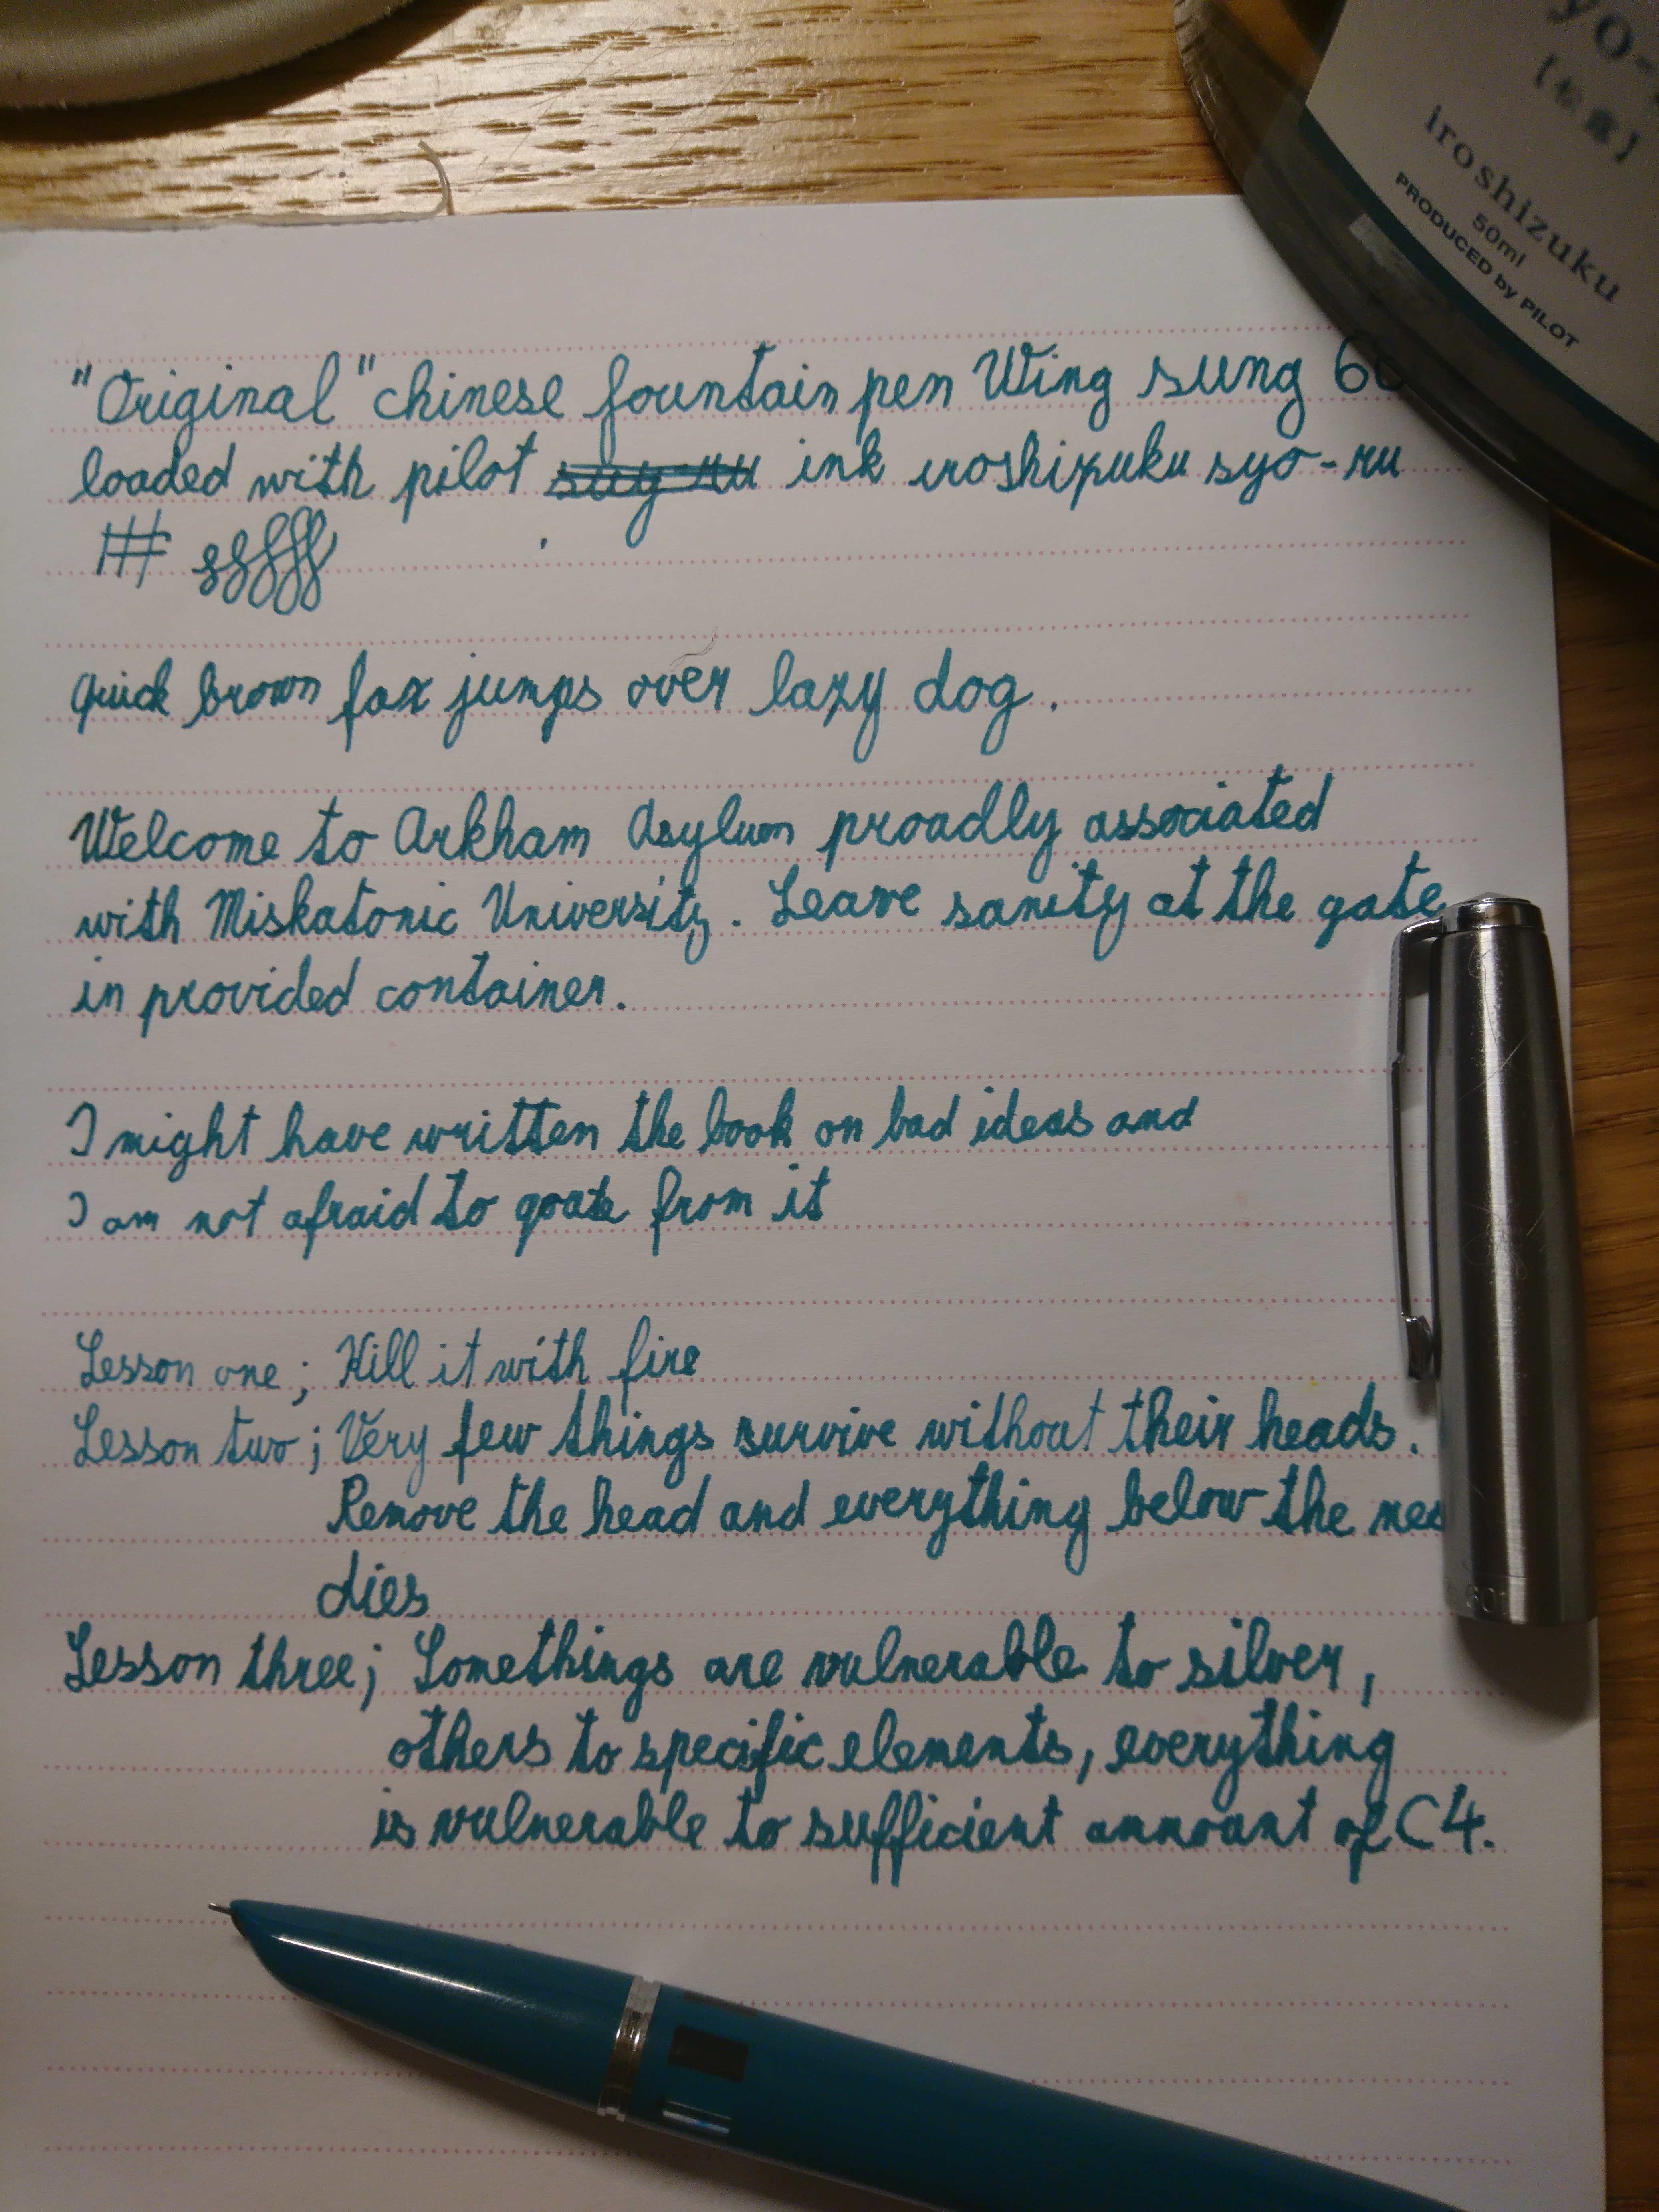 yo-
【松露】
iroshizuku
50ml
PRODUCED by PILOT
"Original" chinese fountain pen Wing sung 60
loaded with pilot ink iroshizuku syo-ru
##
quick brown fox jumps over lazy dog.
Welcome to Arkham Asylum proadly associated
with Miskatonic University. Leave sanity at the gate
in provided container.
I might have written the book on bad ideas and
I am not afraid to qoate from it
Lesson one; Kill it with fire
Lesson two; Very few things survive without their heads.
Remove the head and everything below the nec
dies
Lesson three; Somethings are vulnerable to silver,
others to specific elements, everything
is vulnerable to sufficient ammoant of C4.
601